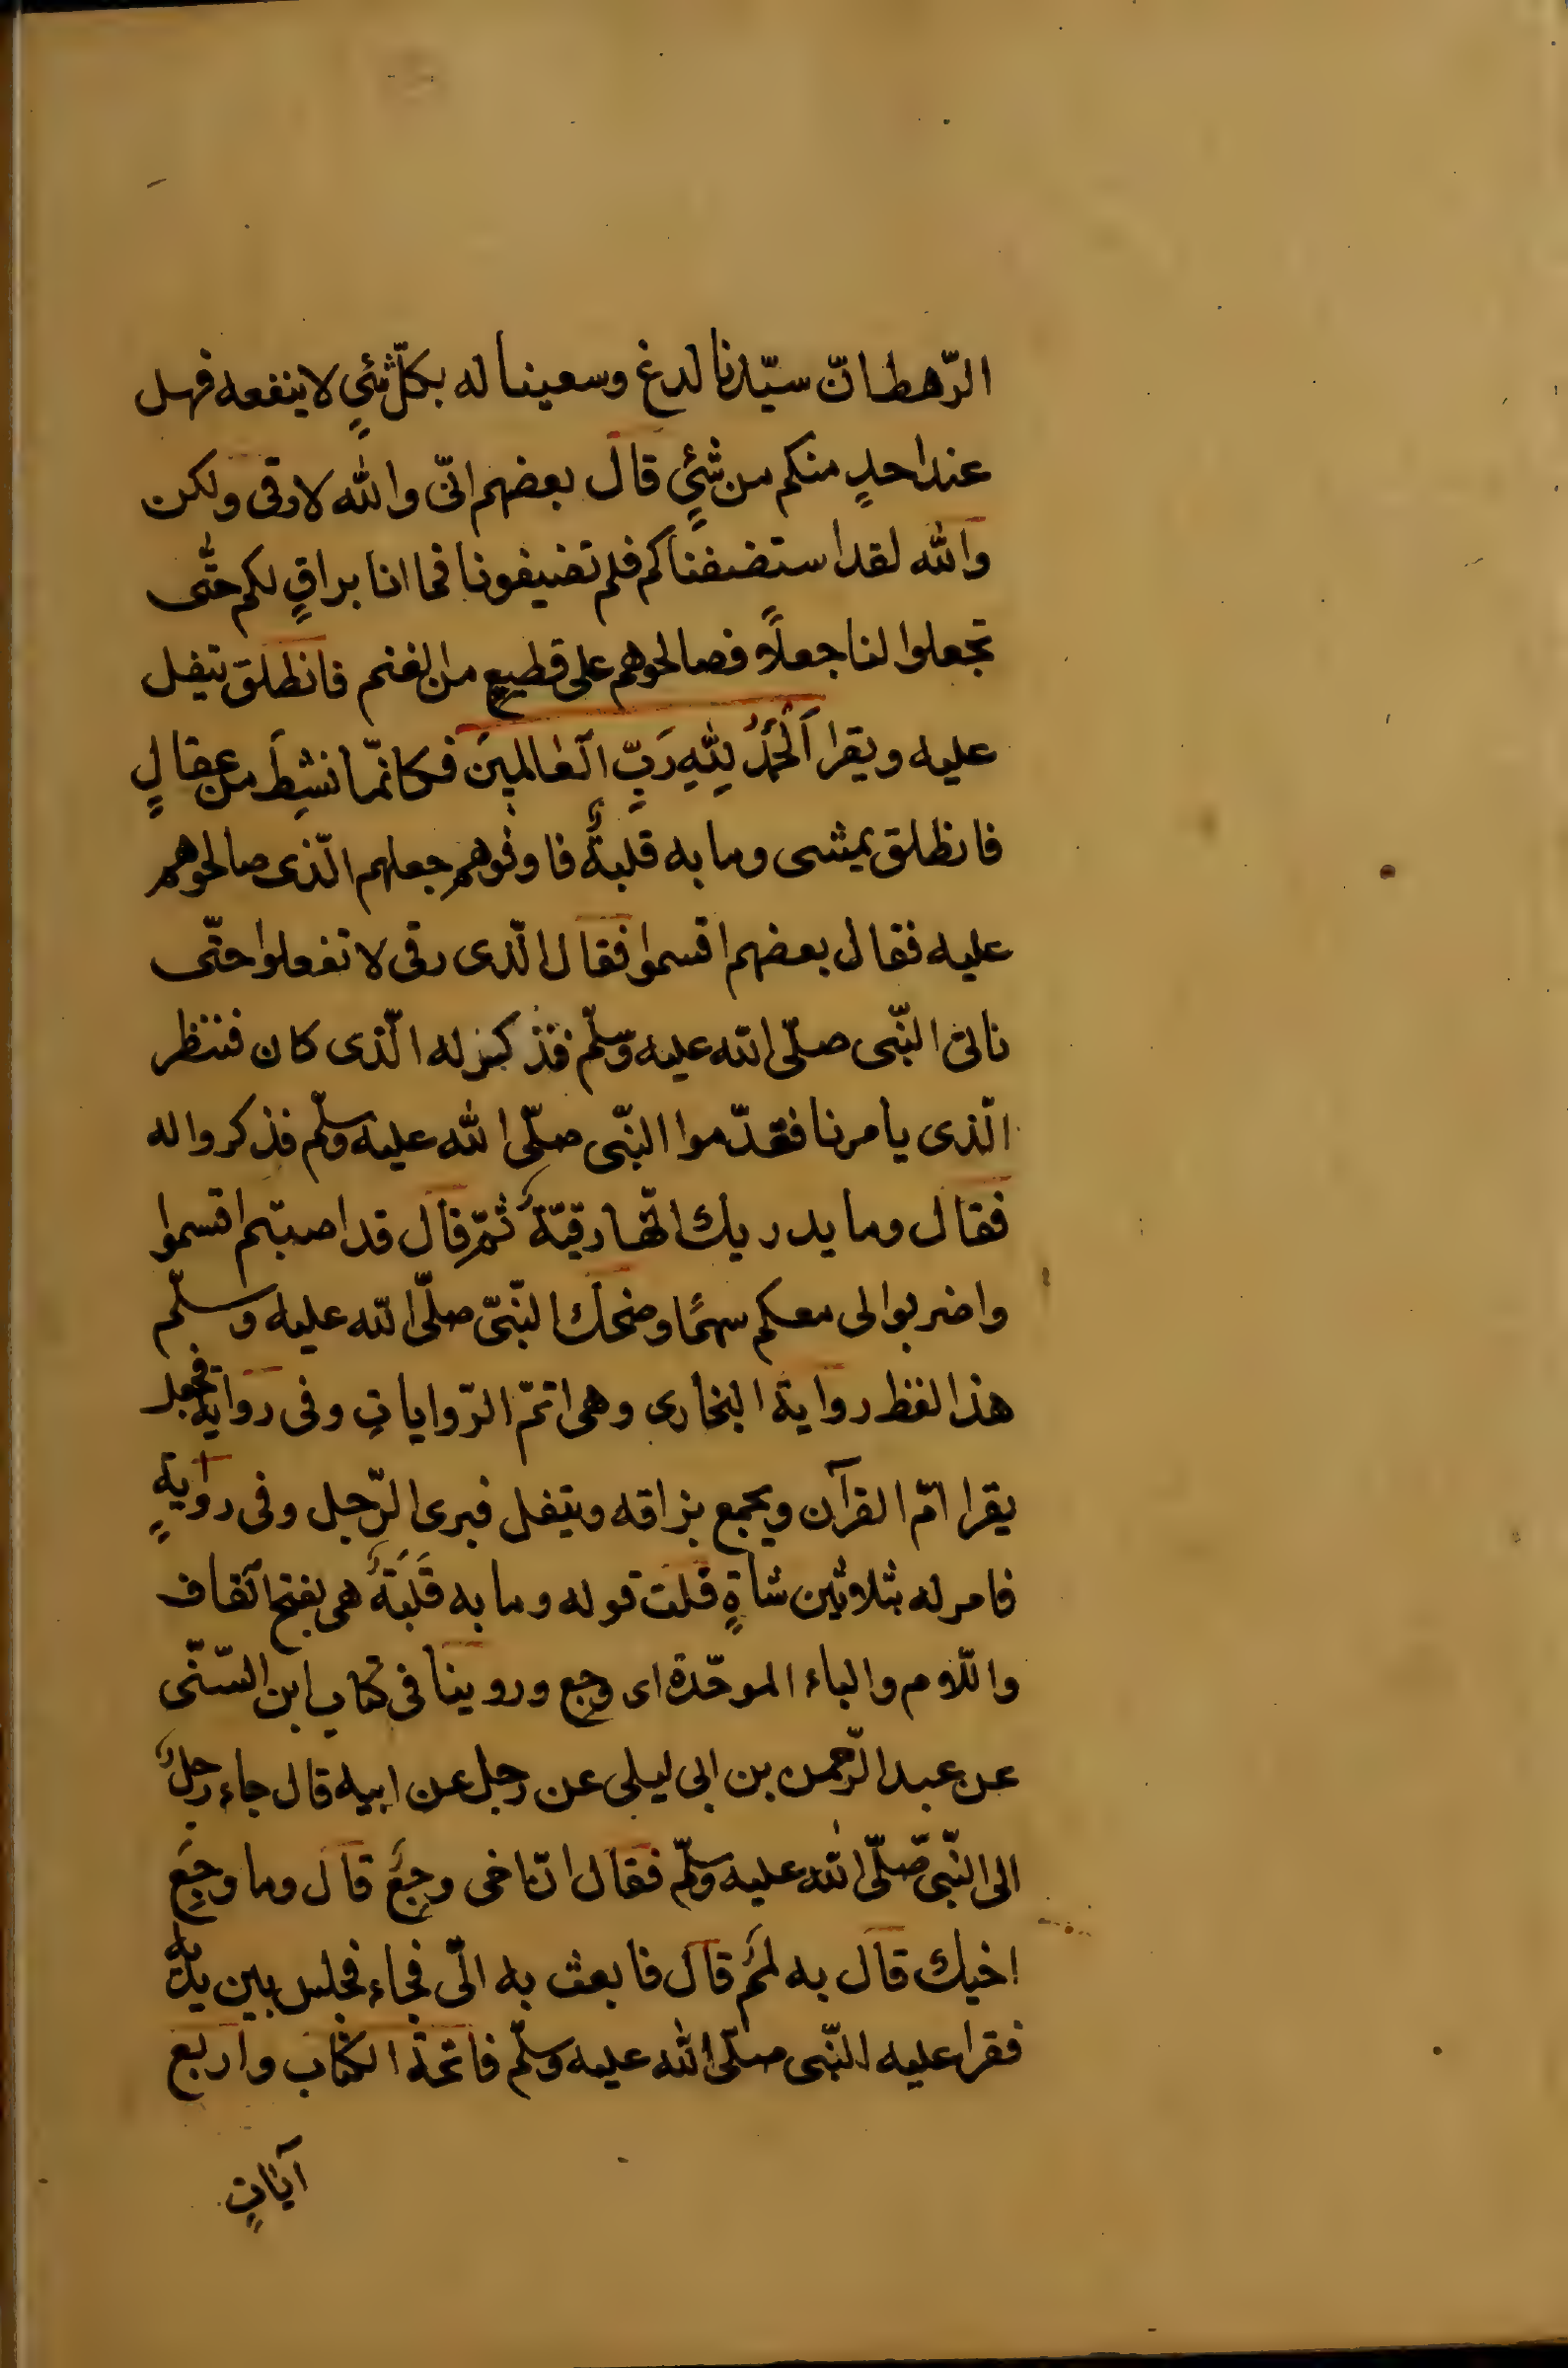 الرّهط انّ سيّدنا لدغ وسعينا له بكلّ شئيٍ لا ينفعه فهل
عند احدٍ منكم من شئيٍ قال بعضهم انّى والله لا رقى ولكن
والله لقد استضفناكم فلم تضيفونا فما انا براقٍ لكم حتّى
تجعلوا لنا جعلًا فصالحوهم على قطيعٍ من الغنم فانطلق يتفل
عليه ويقرا اَلْحَمْدُ لِلّٰهِ رَبِّ الْعَالَمِينَ فكانّما نشِطَ من عقالٍ
فانطلق يمشى وما به قلبةٌ فاوفوهم جعلهم الّذى صالحوهم
عليه فقال بعضهم اقسموا فقال الّذى رقى لا تفعلوا حتّى
ناتى النّبى صلّى الله عليه وسلّم فنذكر له الّذى كان فننظر
الّذى يامرنا فقدّموا النبّى صلّى الله عليه وسلّم فذكروا له
فقال وما يدريك انّها رقيّةٌ ثمّ قال قد اصبتم اقسموا
واضربوا لى معكم سهمًا وضحك النّبىّ صلّى الله عليه وسلّم
هذا لفظ رواية البخارى وهى اتمّ الرّوايات وفى رواية فجعل
يقرا امّ القرآن ويجمع بزاقه ويتفل فبرى الرّجل وفى روايةٍ
فامر له بثلاثين شاةٍ قلت قوله وما به قَلَبَةٌ هى بفتح القاف
والّلام والباء الموحّدة اى وجع وروينا فى كتاب ابن السّنّى
عن عبد الرّحمن بن ابى ليلى عن رجل عن ابيه قال جاء رجلٌ
الى النّبى صّلّى الله عليه وسلّم فقال انّ اخى وجِعٌ قال وما وجَع
اخيك قال به لمَمٌ قال فابعث به الّى فجاء فجلس بين يديه
فقرا عليه النّبى صلّى الله عليه وسلّم فاتحة الكتاب واربع
آياتٍ